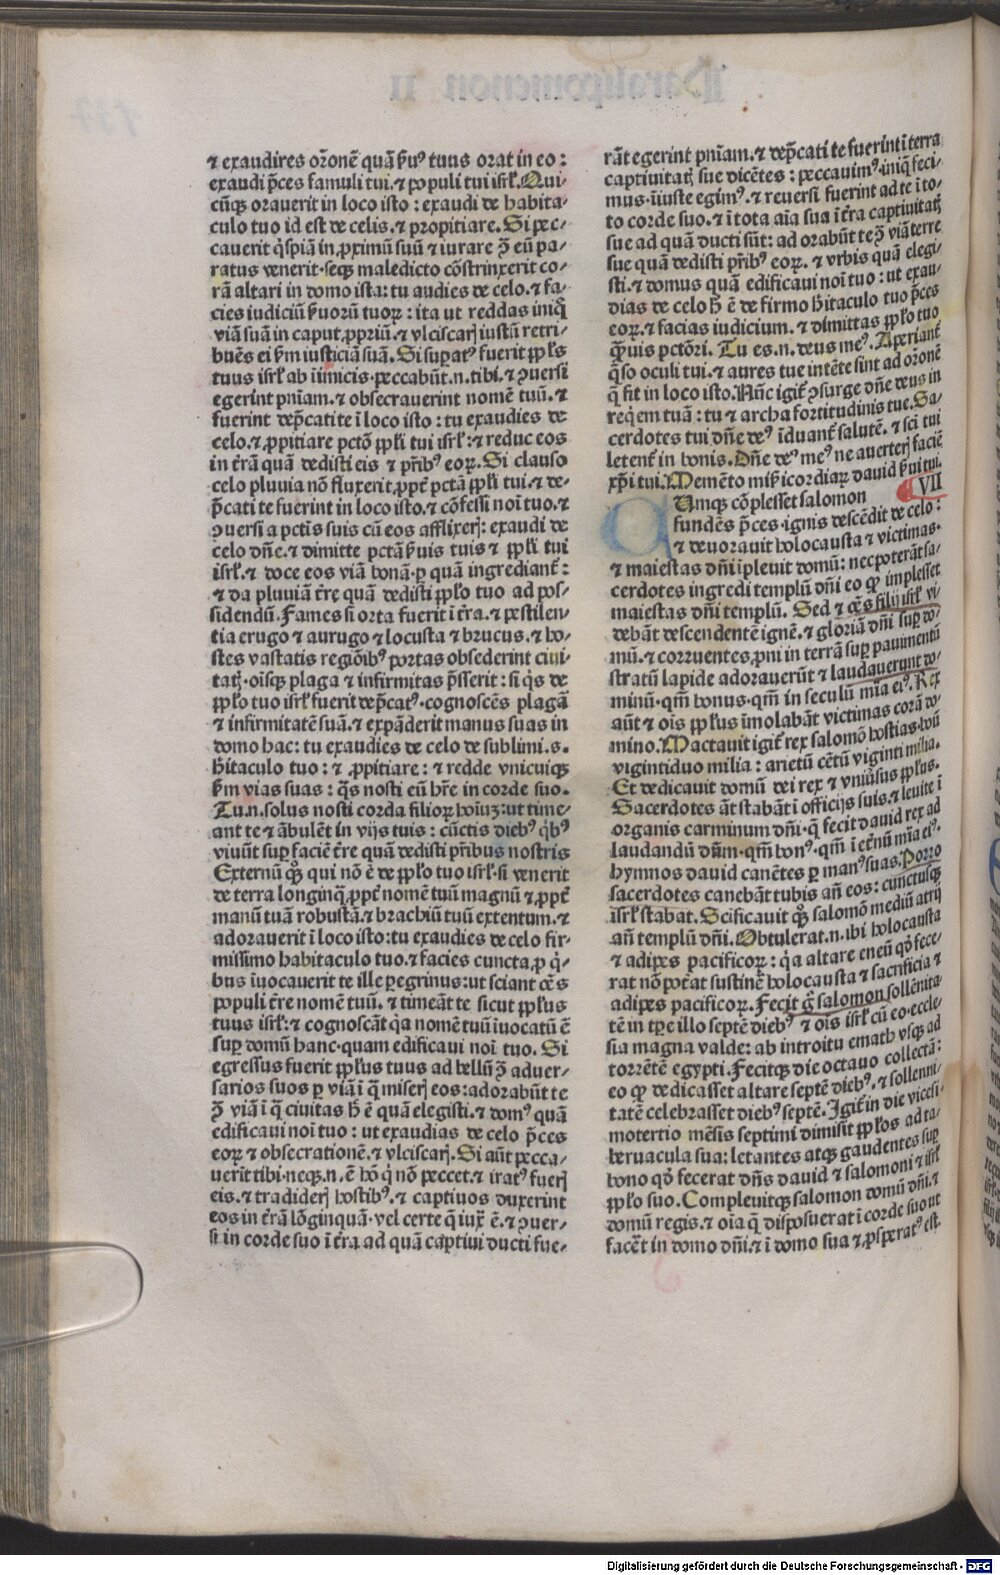 ⁊ exaudires or̄onē quā ẜuꝰ tuus orat in eo:
exaudi p̄ces famuli tui.⁊ populi tui isrl̄.Qui-
cūqꝫ orauerit in loco isto: exaudi de habita-
culo tuo id est de celis.⁊ propitiare. Si pec-
cauerit q̇spiā in ꝓximū suū ⁊ iurare ↄ̄ eū pa-
ratus venerit.seqꝫ maledicto cōstrinxerit co-
rā altari in domo ista: tu audies de celo.⁊ fa-
cies iudiciū ẜuorū tuoꝝ: ita ut reddas iniq̇
viā suā in caput ꝓpriū.⁊ vlciscarꝭ iustū retri-
buēs ei ẜm iusticiā suā. Si suꝑatꝰ fuerit ppl̄s
tuus isrl̄ ab inimicis.peccabūt.n.tibi.⁊ ↄuersi
egerint pniam.⁊ obsecrauerint nomē tuū.⁊
fuerint dep̄cati te ī loco isto: tu exaudies de
celo.⁊ ꝓpitiare pctō ppl̄i tui isrl̄:⁊ reduc eos
in t̄rā quā dedisti eis ⁊ pr̄ibꝰ eoꝝ. Si clauso
celo pluuia nō fluxerit ꝓpt̄ pctā ppl̄i tui.⁊ de-
p̄cati te fuerint in loco isto.⁊ cōfessi noi tuo.⁊
ↄuersi a pctis suis cū eos afflixerꝭ: exaudi de
celo dn̄e.⁊ dimitte pctā ẜuis tuis ⁊ ppl̄i tui
isrl̄.⁊ doce eos viā bonā.ꝑ quā ingrediant̄:
⁊ da pluuiā t̄re quā dedisti ppl̄o tuo ad pos-
sidendū. Fames si orta fuerit ī t̄ra.⁊ pestilen-
tia erugo ⁊ aurugo ⁊ locusta ⁊ brucus.⁊ ho-
stes vastatis regiōibꝰ portas obsederint ciui-
tatꝭ.oīsqꝫ plaga ⁊ infirmitas p̄sserit: si q̇s de
ppl̄o tuo isrl̄ fuerit dep̄catꝰ.cognoscēs plagā
⁊ infirmitatē suā.⁊ expāderit manus suas in
domo hac: tu exaudies de celo de sublimi.s.
hītaculo tuo: ⁊ ꝓpitiare: ⁊ redde vnicuiqꝫ
ẜm vias suas: q̄s nosti eū hr̄e in corde suo.
Tu.n.solus nosti corda filioꝝ hoīuꝫ:ut time-
ant te ⁊ ābulēt in vijs tuis: cūctis diebꝰ q̇bꝰ
viuūt suꝑ faciē t̄re quā dedisti pr̄ibus nostris
Externū qꝫ qui nō ē de ppl̄o tuo isrl̄.si venerit
de terra longinq̄ ꝓpt̄ nomē tuū magnū ⁊ ꝓpt̄
manū tuā robustā.⁊ brachiū tuū extentum.⁊
adorauerit ī loco isto:tu exaudies de celo fir-
missimo habitaculo tuo.⁊ facies cuncta ꝓ q̇-
bus īuocauerit te ille peregrinus:ut sciant oēs
populi t̄re nomē tuū.⁊ timeāt te sicut ppl̄us
tuus isrl̄:⁊ cognoscāt q̇a nomē tuū īuocatū ē
suꝑ domū hanc.quam edificaui noī tuo. Si
egressus fuerit ppl̄us tuus ad bellū ↄ̄ aduer-
sarios suos ꝑ viā ī q̄ miserꝭ eos:adorabūt te
ↄ̄ viā ī q̄ ciuitas h̄ ē quā elegisti.⁊ domꝰ quā
edificaui noī tuo: ut exaudias de celo p̄ces
eoꝝ ⁊ obsecrationē.⁊ vlciscarꝭ. Si aūt pecca-
uerit tibi.neqꝫ.n.ē hō q̇ nō peccet.⁊ iratꝰ fuerꝭ
eis.⁊ tradiderꝭ hostibꝰ.⁊ captiuos duxerint
eos in t̄rā lōginquā.vel certe q̄ iux̄ ē.⁊ ↄuer-
si in corde suo ī t̄ra ad quā captiui ducti fue-
rāt egerint pniam.⁊ dep̄cati te fuerint ī terra
captiuitatꝭ sue dicētes: peccauimꝰ.iniq̄ feci-
mus.iiuste egimꝰ.⁊ reuersi fuerint ad te ī to-
to corde suo.⁊ ī tota aīa sua ī t̄ra captiuitatꝭ
sue ad quā ducti sūt: ad orabūt te ↄ̄ viā terre
sue quā dedisti pr̄ibꝰ eoꝝ.⁊ vrbis quā elegi-
sti.⁊ domus quā edificaui noī tuo: ut exau-
dias de celo h̄ ē de firmo hītaculo tuo p̄ces
eoꝝ.⁊ facias iudicium.⁊ dimittas ppl̄o tuo
q̄uis pctōri. Tu es.n.deus meꝰ. Aperiant̄
q̄so oculi tui.⁊ aures tue intēte sint ad or̄onē
q̄ fit in loco isto.Nūc igit̄ ↄsurge dn̄e deus in
reqēm tuā: tu ⁊ archa fortitudinis tue.Sa-
cerdotes tui dn̄e deꝰ īduant̄ salutē.⁊ sc̄i tui
letent̄ in bonis.Dn̄e deꝰ meꝰ ne auerterꝭ faciē
xp̄i tui.Memēto mīẜicordiaꝝ dauid ẜui tui.
VII
Cumqꝫ cōplesset salomon
fundēs p̄ces.ignis descēdit de celo:
⁊ deuorauit holocausta ⁊ victimas.
⁊ maiestas dn̄i īpleuit domū: nec poterāt sa-
cerdotes ingredi templū dn̄i eo ꝙ implesset
maiestas dn̄i templū. Sed ⁊ oēs filij isrl̄ vi-
debāt descendentē ignē.⁊ gloriā dn̄i suꝑ do-
mū.⁊ corruentes ꝓni in terrā suꝑ pauimentū
stratū lapide adorauerūt ⁊ laudauerunt do-
minū.qm̄ bonus.qm̄ in seculū mīa eiꝰ. Rex
aūt ⁊ oīs ppl̄us īmolabāt victimas corā do-
mino.Mactauit igit̄ rex salomō hostias.boū
vigintiduo milia: arietū cētū viginti milia.
Et dedicauit domū dei rex ⁊ vniūsus ppl̄us.
Sacerdotes āt stabāt ī officijs suis.⁊ leuite ī
organis carminum dn̄i.q̄ fecit dauid rex ad
laudandū dūm.qm̄ bonꝰ.qm̄ ī et̄nū mīa eiꝰ.
hymnos dauid canētes ꝑ manꝰ suas.Porro
sacerdotes canebāt tubis an̄ eos: cunctusqꝫ
isrl̄ stabat. Scificauit qꝫ salomō mediū atrij
an̄ templū dn̄i. Obtulerat.n.ibi holocausta
⁊ adipes pacificoꝝ: q̇a altare eneū qḋ fece-
rat nō poterat sustinē holocausta ⁊ sacrificia ⁊
adipes pacificoꝝ. Fecit g̊ salomon sollēnita-
tē in tpr̄e illo septē diebꝰ ⁊ oīs isrl̄ cū eo.eccle-
sia magna valde: ab introitu emath vsqꝫ ad
torrētē egypti.Fecitqꝫ die octauo collectā:
eo ꝙ dedicasset altare septē diebꝰ.⁊ sollenni-
tatē celebrasset diebꝰ septē.Igit̄ in die vicesi-
motertio mēsis septimi dimisit ppl̄os ad ta-
bernacula sua: letantes atqꝫ gaudentes suꝑ
bono qḋ fecerat dn̄s dauid ⁊ salomoni ⁊ isrl̄
ppl̄o suo. Compleuitqꝫ salomon domū dn̄i.⁊
domū regis.⁊ oīa q̄ disposuerat ī corde suo ut
facēt in domo dn̄i.⁊ ī domo sua ⁊ ꝓsꝑatꝰ est.
Digitalisierung gefördert durch die Deutsche Forschungsgemeinschaft - DFG